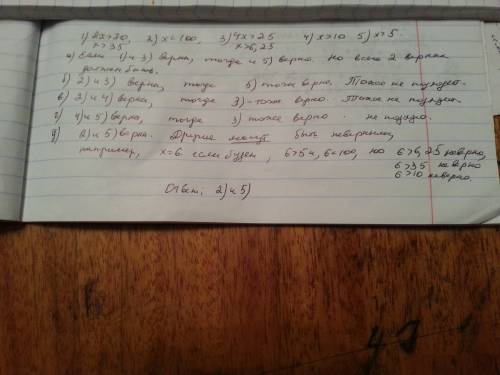 1) 2x>70, 2) x<100, 3) 4x>25 4) x>10 5) x>5.
x>35 x>6,25
а) Если 1) и 3) верна, тогда и 5) верно. Но всего 2 верных
должны быть.
б) 2) и 3) верна, тогда 5) тоже верно. Тоже не подходит.
в) 2) и 4) верна, тогда 3) - тоже верно. Тоже не подходит.
г) 4) и 5) верна, тогда 3) тоже верно не подходит.
д) 2) и 5) верна. Другие могут быть неверными,
например, x=6 если будем, 6>5 и, 6<100, но 6>6,25 неверно,
6>35 неверно
6>10 неверно.
Ответ: 2) и 5)